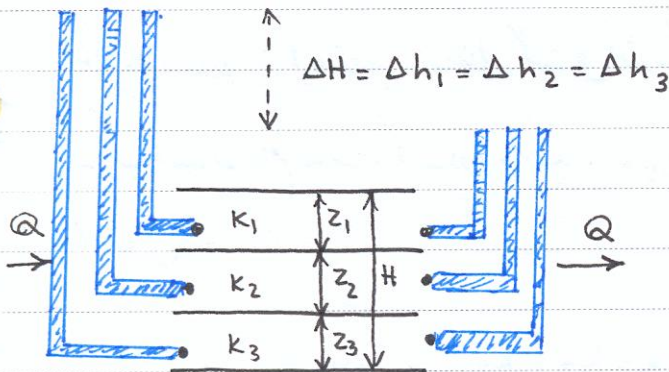 ΔH = Δh₁ = Δh₂ = Δh₃
Q
K₁
Z₁
Q
K₂
Z₂
H
K₃
Z₃